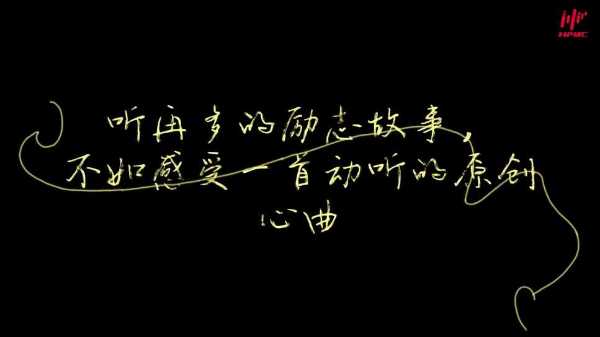 听再多的励志故事,
不如感受一首动听的原创
心曲